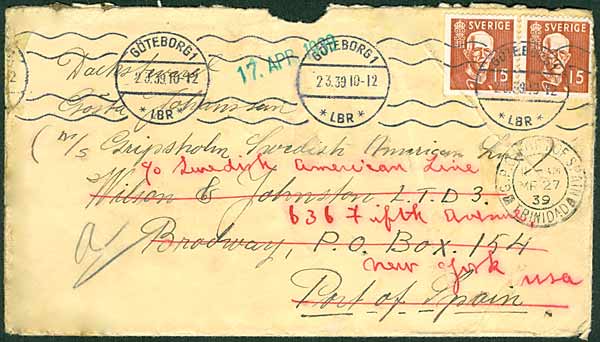 GÖTEBORG 1
2.3.39.10-12
* LBR *
17. APR. 1939
GÖTEBORG 1
2.3.39 10-12
* LBR *
SVERIGE
15
SVERIGE
15
* LBR *
Gösta Johansson
M/S Gripsholm Swedish American Line
c/o Swedish American Line
Wilson & Johnston L.T.D 3.
636 Fifth Avenue
Brodway, P.O. Box. 154
New York USA
Port of Spain
G.P.O. PORT OF SPAIN
MR 27
39
TRINIDAD